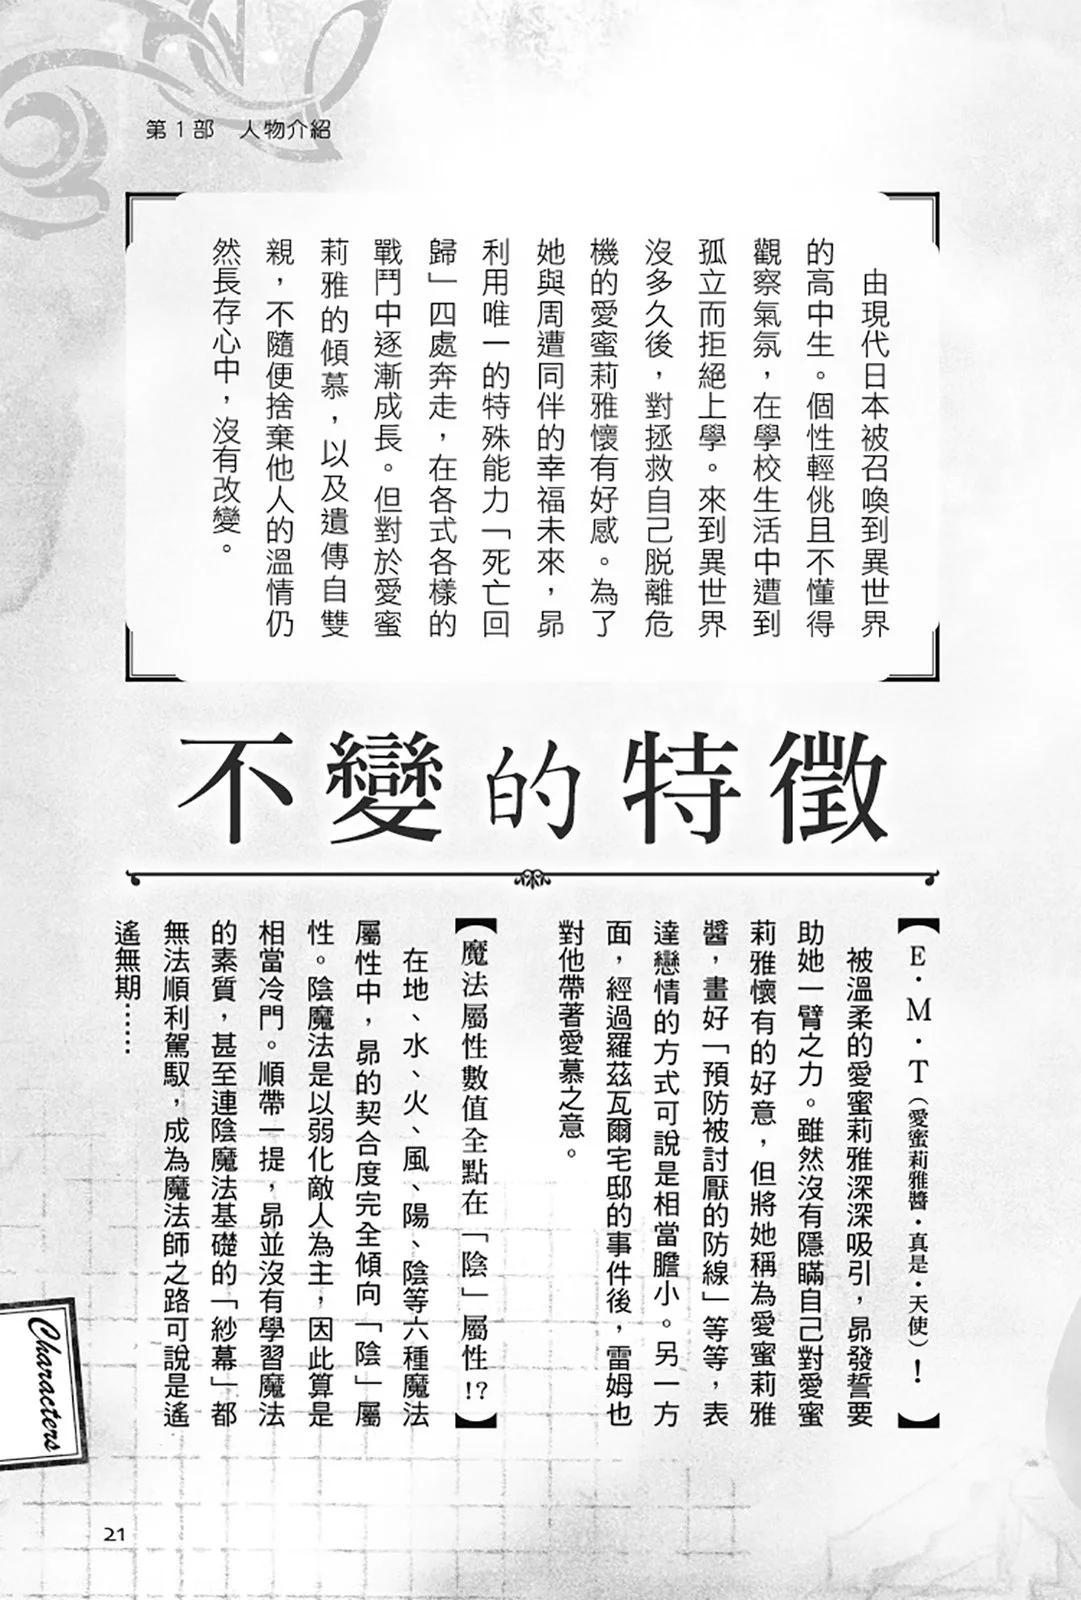 第1部　人物介紹
由現代日本被召喚到異世界
的高中生。個性輕佻且不懂得
觀察氣氛，在學校生活中遭到
孤立而拒絕上學。來到異世界
沒多久後，對拯救自己脫離危
機的愛蜜莉雅懷有好感。為了
她與周遭同伴的幸福未來，昴
利用唯一的特殊能力「死亡回
歸」四處奔走，在各式各樣的
戰鬥中逐漸成長。但對於愛蜜
莉雅的傾慕，以及遺傳自雙
親，不隨便捨棄他人的溫情仍
然長存心中，沒有改變。
不變的特徵
【E・M・T（愛蜜莉雅醬・真是・天使）！】
被溫柔的愛蜜莉雅深深吸引，昴發誓要
助她一臂之力。雖然沒有隱瞞自己對愛蜜
莉雅懷有的好意，但將她稱為愛蜜莉雅
醬，畫好「預防被討厭的防線」等等，表
達戀情的方式可說是相當膽小。另一方
面，經過羅茲瓦爾宅邸的事件後，雷姆也
對他帶著愛慕之意。
【魔法屬性數值全點在「陰」屬性!?】
在地、水、火、風、陽、陰等六種魔法
屬性中，昴的契合度完全傾向「陰」屬
性。陰魔法是以弱化敵人為主，因此算是
相當冷門。順帶一提，昴並沒有學習魔法
的素質，甚至連陰魔法基礎的「紗幕」都
無法順利駕馭，成為魔法師之路可說是遙
遙無期……
Characters
21